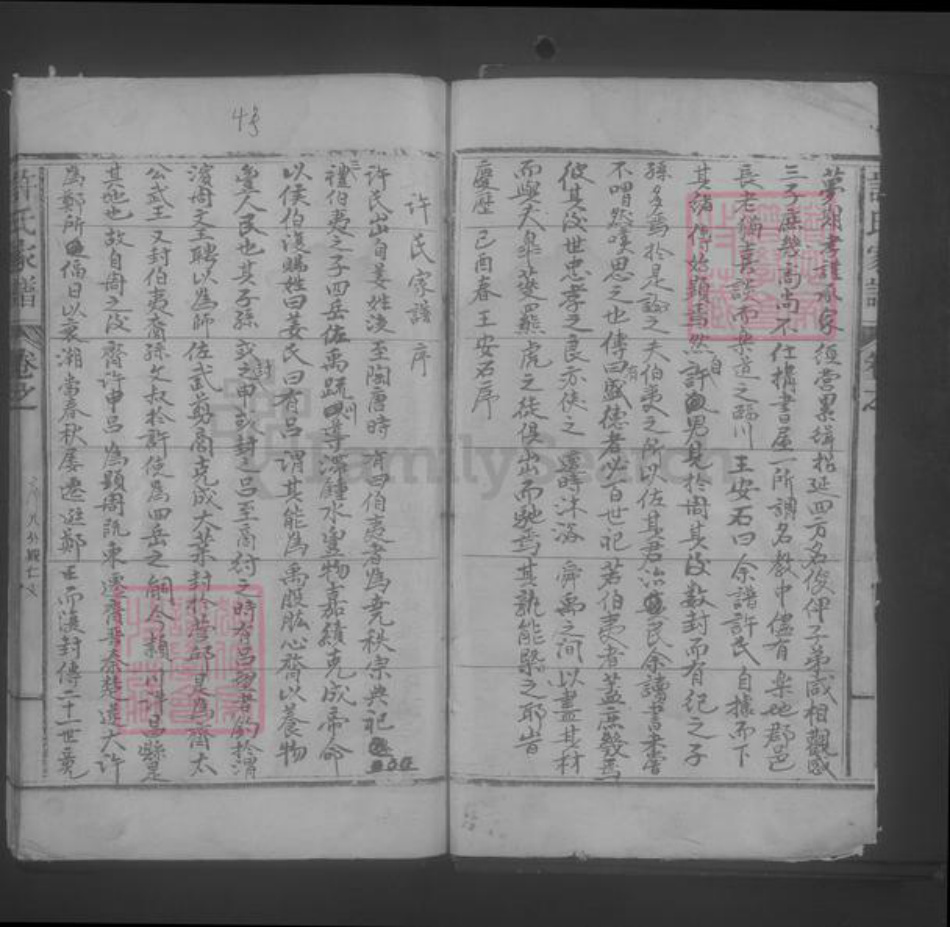 夢湖書禮承家須營累緝招延四方名俊俾子弟咸相觀感
三子應幾高尚不仕構書屋一所謂名教中儘有樂地郡邑
長老猶喜談而樂道之臨川王安石曰余譜許氏自據而下
其緒傳始顯焉然許自男見於周其後數封而有紀之子
孫多焉於是論之夫伯夷之所以佐其君治民余讀書未嘗
不喟然嘆思之也傳曰盛德者必有百世祀若伯夷者蓋庶幾焉
彼其後世忠孝之良亦使之遭時沐浴舜禹之間以盡其材
而與夫皋夔羆虎之徒俱出而馳焉其孰能槩之耶旹
慶歷己酉春王安石序
許氏家譜序
許氏出自姜姓後至陶唐時有曰伯夷者為堯秩宗典祀
禮伯夷之子四岳佐禹疏川導滯鍾水豐物嘉績克成帝命
以侯伯復賜姓曰姜氏曰有呂謂其能為禹股肱心膂以養物
豐人民也其子孫或封之申或封之呂至商紂之時有呂望者釣於渭
濱周文王聘以為師佐武剪商克成大業封於營邱是為齊太
公武王又封伯夷裔孫文叔於許使為四岳之嗣今潁川許昌縣是
其地也故自周之後齊許申呂為顯周既東遷齊晉秦楚遞大許
為鄭所偪日以衰潮當春秋屢遷避鄭而復封傳二十一世竟
許氏家譜
卷之一
4号